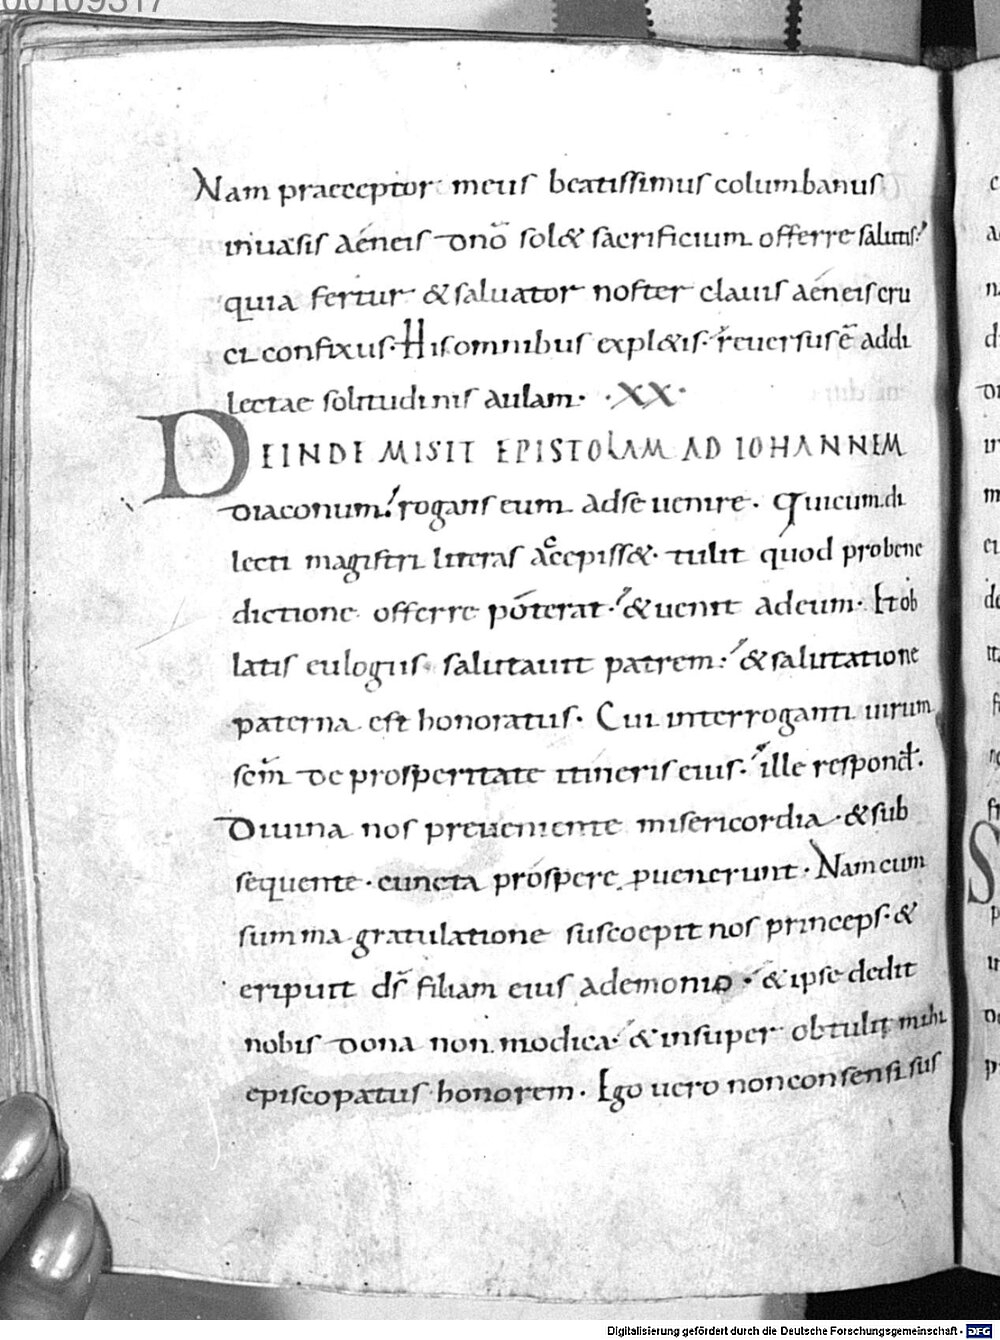 00109317
Nam praeceptor meus beatissimus columbanus
inuasis aéneis dnō sol& sacrificium offerre salutis:
quia fertur &saluator noster clauis aéneis cru
ci confixus. His omnibus expl&is. reuersus ē addi
lectae solitudinis aulam. .XX.
DEINDE MISIT EPISTOLAM AD IOHANNEM
diaconum. rogans eum adse uenire. Qui cum di
lecti magistri literas accepiss&. tulit quod probene
dictione offerre póterat. &uenit adeum. Et ob
latis eulogiis salutauit patrem. &salutatione
paterna est honoratus. Cui interroganti uirum
sc̄m de prosperitate itineris eius. ille respond̄.
Diuina nos preueniente misericordia. &sub
sequente. cuncta próspere puenerunt. Nam cum
summa gratulatione suscoepit nos princeps. &
eripuit d̄s filiam eius ademonio. &ipse dedit
nobis dona non modica. &insuper obtulit mihi
episcopatus honorem. Ego uero nonconsensi sus
Digitalisierung gefördert durch die Deutsche Forschungsgemeinschaft - DFG